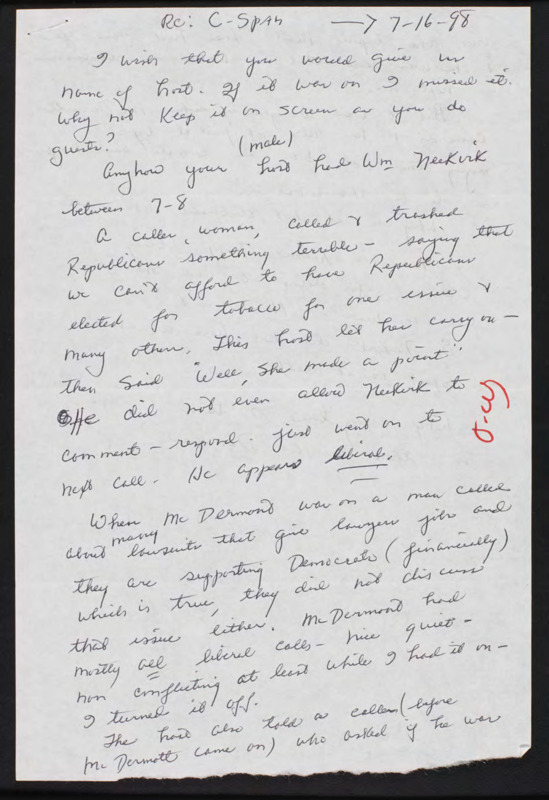 RE: C-Span → 7-16-98
I wish that you would give us
name of host. If it was on I missed it.
Why not Keep it on screen as you do
guests?
(male)
Anyhow your host had Wm NeiKirk
between 7-8
A caller, woman, called & trashed
Republicans something terrible - saying that
we can't afford to have Republicans
elected for tobacco for one issue &
many others. This host let her carry on -
then said "Well, she made a point"
He did not even allow NeiKirk to
comment - respond. just went on to
next call. He appears liberal.
When Mc Dermond was on a man called
about many lawsuits that give lawyers jobs and
they are supporting Democrats (financially)
which is true, they did not discuss
that issue either. McDermond had
mostly all liberal calls - nice quiet -
non conflicting at least while I had it on -
I turned it off.
The host also told a caller (before
Mc Dermott came on) who asked if he was